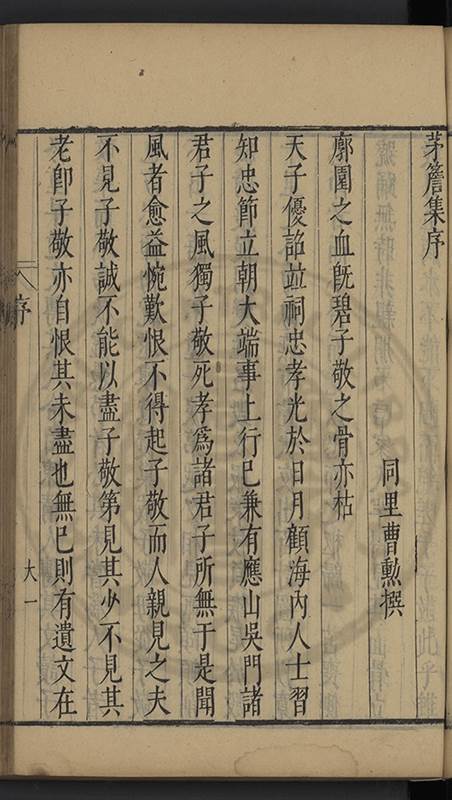 茅簷集序
同里曹勳撰
廓園之血旣碧子敬之骨亦枯
天子優詔竝祠忠孝光於日月顧海內人士習
知忠節立朝大端事上行已兼有應山吳門諸
君子之風獨子敬死孝爲諸君子所無于是聞
風者愈益惋歎恨不得起子敬而人親見之夫
不見子敬誠不能以盡子敬第見其少不見其
老卽子敬亦自恨其未盡也無已則有遺文在
序
大一